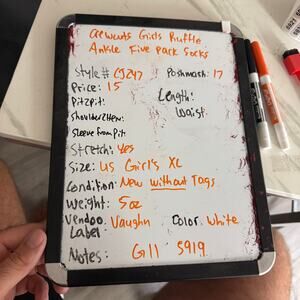 Crewcuts Girls Ruffle
Ankle Five Pack Socks
Style# CJ247 Poshmark: 17
Price: 15
Pit2pit: Length:
Shoulder2Hem: Waist:
Sleeve from Pit:
Stretch: Yes
Size: US Girl's XL
Condition: New without Tags
Weight: 5oz
Vendoo Label: Vaughn Color: White
Notes: G11 5919